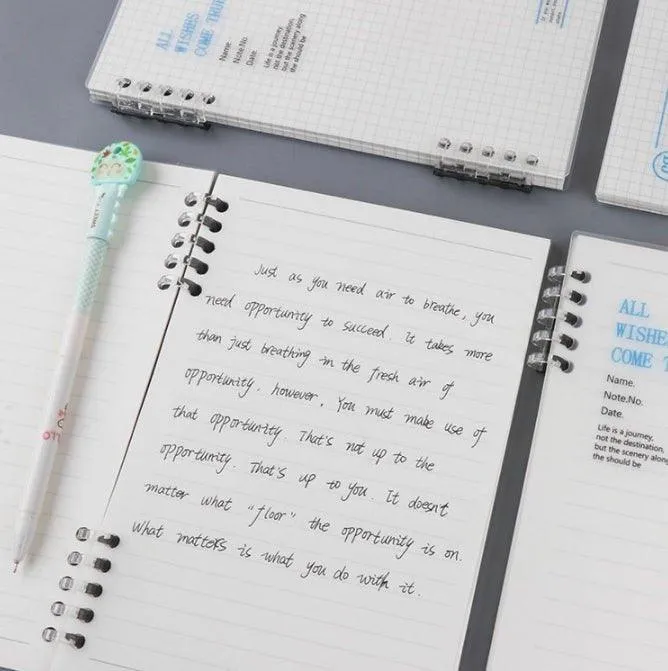 ALL
WISHES
COME TRUE
Name.
Note.No.
Date.
Life is a journey,
not the destination,
but the scenery along
the should be
Just as you need air to breathe, you
need opportunity to succeed. it takes more
than just breathing in the fresh air of
opportunity. however, You must make use of
that opportunity. That's not up to the
opportunity. That's up to you. It doesnt
matter what "floor" the opportunity is on.
What matters is what you do with it.
ALL
WISHES
COME T
Name.
Note.No.
Date.
Life is a journey,
not the destination,
but the scenery along
the should be